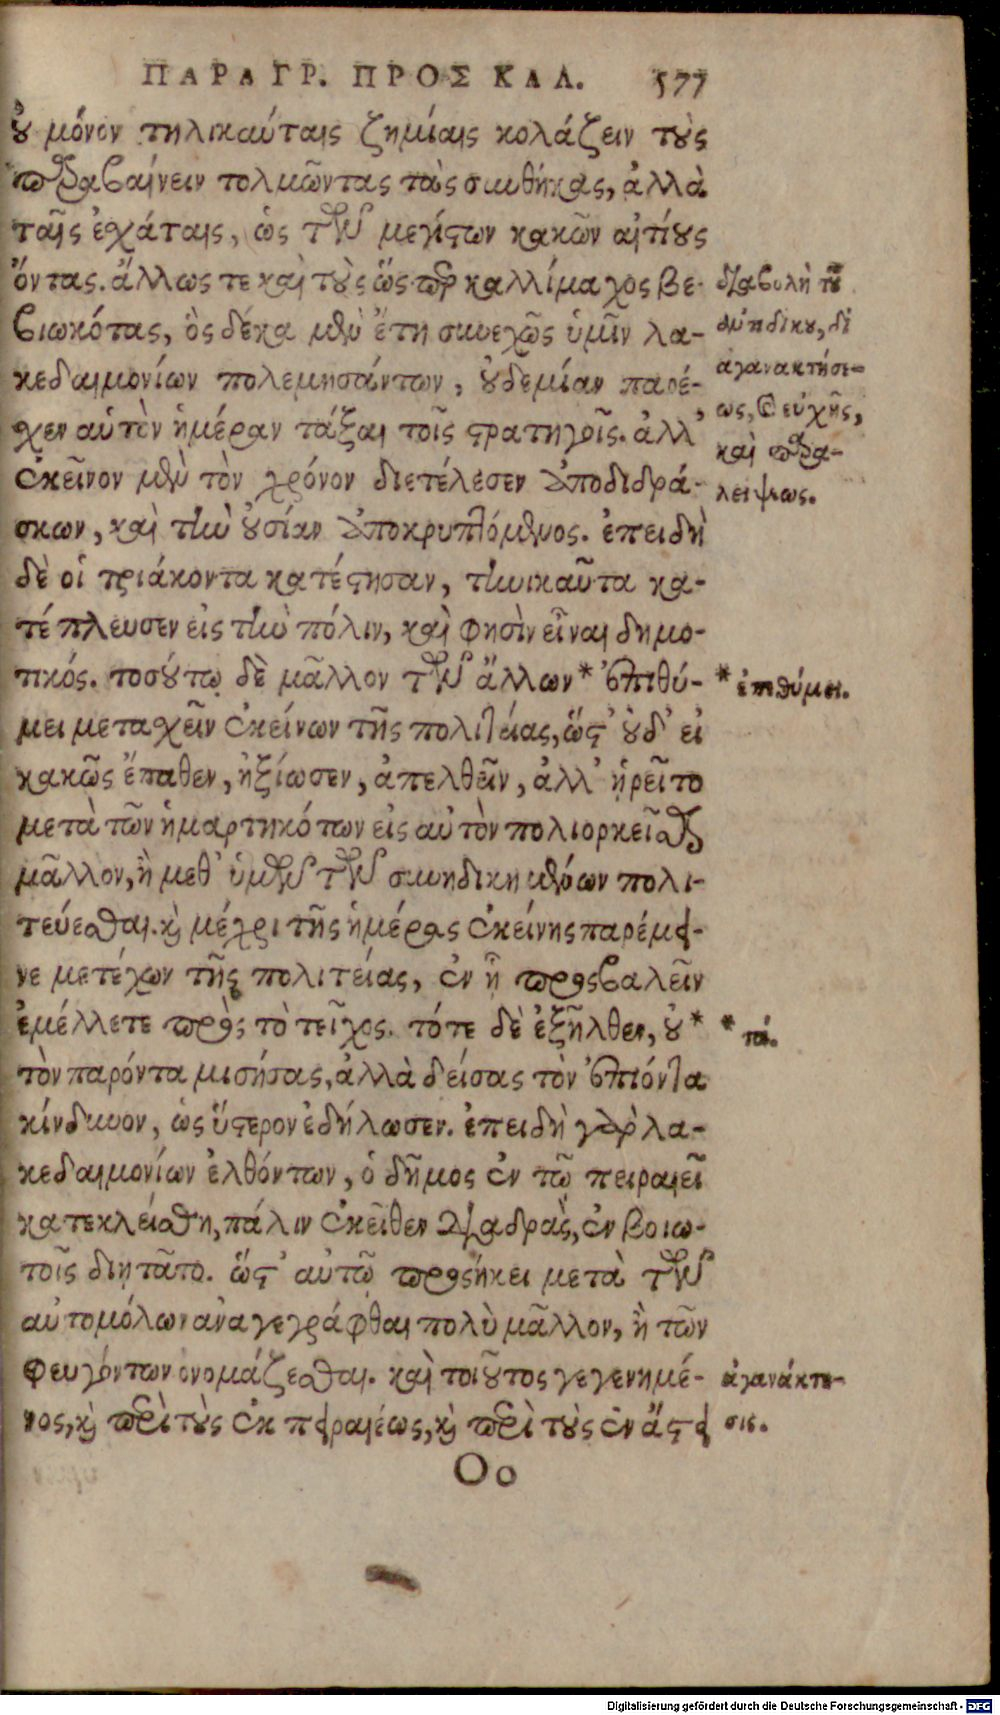 ΠΑΡΑΓΡ. ΠΡΟΣ ΚΑΛ. 577
οὐ μόνον τηλικαύταις ζημίαις κολάζειν τοὺς
παραβαίνειν τολμῶντας τὰς συνθήκας, ἀλλὰ
ταῖς ἐσχάταις, ὡς τῶν μεγίστων κακῶν αἰτίους
ὄντας. ἄλλως τε καὶ τοὺς ὥσπερ καλλίμαχος βε-
βιωκότας, ὃς δέκα μὲν ἔτη συνεχῶς ὑμῖν λα-
κεδαιμονίων πολεμησάντων, οὐδεμίαν παρέ-
χεν αὑτὸν ἡμέραν τάξαι τοῖς στρατηγοῖς. ἀλλ'
ἐκεῖνον μὲν τὸν χρόνον διετέλεσεν ἀποδιδρά-
σκων, καὶ τὴν οὐσίαν ἀποκρυπτόμενος. ἐπειδὴ
δὲ οἱ τριάκοντα κατέστησαν, τηνικαῦτα κα-
τέπλευσεν εἰς τὴν πόλιν, καὶ φησὶν εἶναι δημο-
τικός. τοσούτῳ δὲ μᾶλλον τῶν ἄλλων * ἐπιθύ-
μει μετασχεῖν ἐκείνων τῆς πολιτείας, ὥστ' οὐδ' εἰ
κακῶς ἔπαθεν, ἠξίωσεν, ἀπελθεῖν, ἀλλ' ᾑρεῖτο
μετὰ τῶν ἡμαρτηκότων εἰς αὐτὸν πολιορκεῖσθαι
μᾶλλον, ἢ μεθ' ὑμῶν τῶν συνηδικημένων πολι-
τεύεσθαι. καὶ μέχρι τῆς ἡμέρας ἐκείνης παρέμει-
νε μετέχων τῆς πολιτείας, ἐν ᾗ προσβαλεῖν
ἐμέλλετε πρὸς τὸ τεῖχος. τότε δὲ ἐξῆλθεν, οὐ *
τὸν παρόντα μισήσας, ἀλλὰ δείσας τὸν ἐπιόντα
κίνδυνον, ὡς ὕστερον ἐδήλωσεν. ἐπειδὴ γὰρ λα-
κεδαιμονίων ἐλθόντων, ὁ δῆμος ἐν τῷ πειραιεῖ
κατεκλείσθη, πάλιν ἐκεῖθεν διαδρὰς, ἐν βοιω-
τοῖς διῃτᾶτο. ὥστ' αὐτῷ προσήκει μετὰ τῶν
αὐτομόλων ἀναγεγράφθαι πολὺ μᾶλλον, ἢ τῶν
φευγόντων ὀνομάζεσθαι. καὶ τοιοῦτος γεγενημέ-
νος, καὶ περὶ τοὺς ἐκ πειραιέως, καὶ περὶ τοὺς ἐν ἄστει
Οο
διαβολὴ τοῦ
ἀντιδίκου, δι'
ἀγανακτήσε-
ως, καὶ εὐχῆς,
καὶ παρα-
λείψεως.
* ἐπεθύμει.
* τὰ.
ἀγανάκτη-
σις.
Digitalisierung gefördert durch die Deutsche Forschungsgemeinschaft - DFG